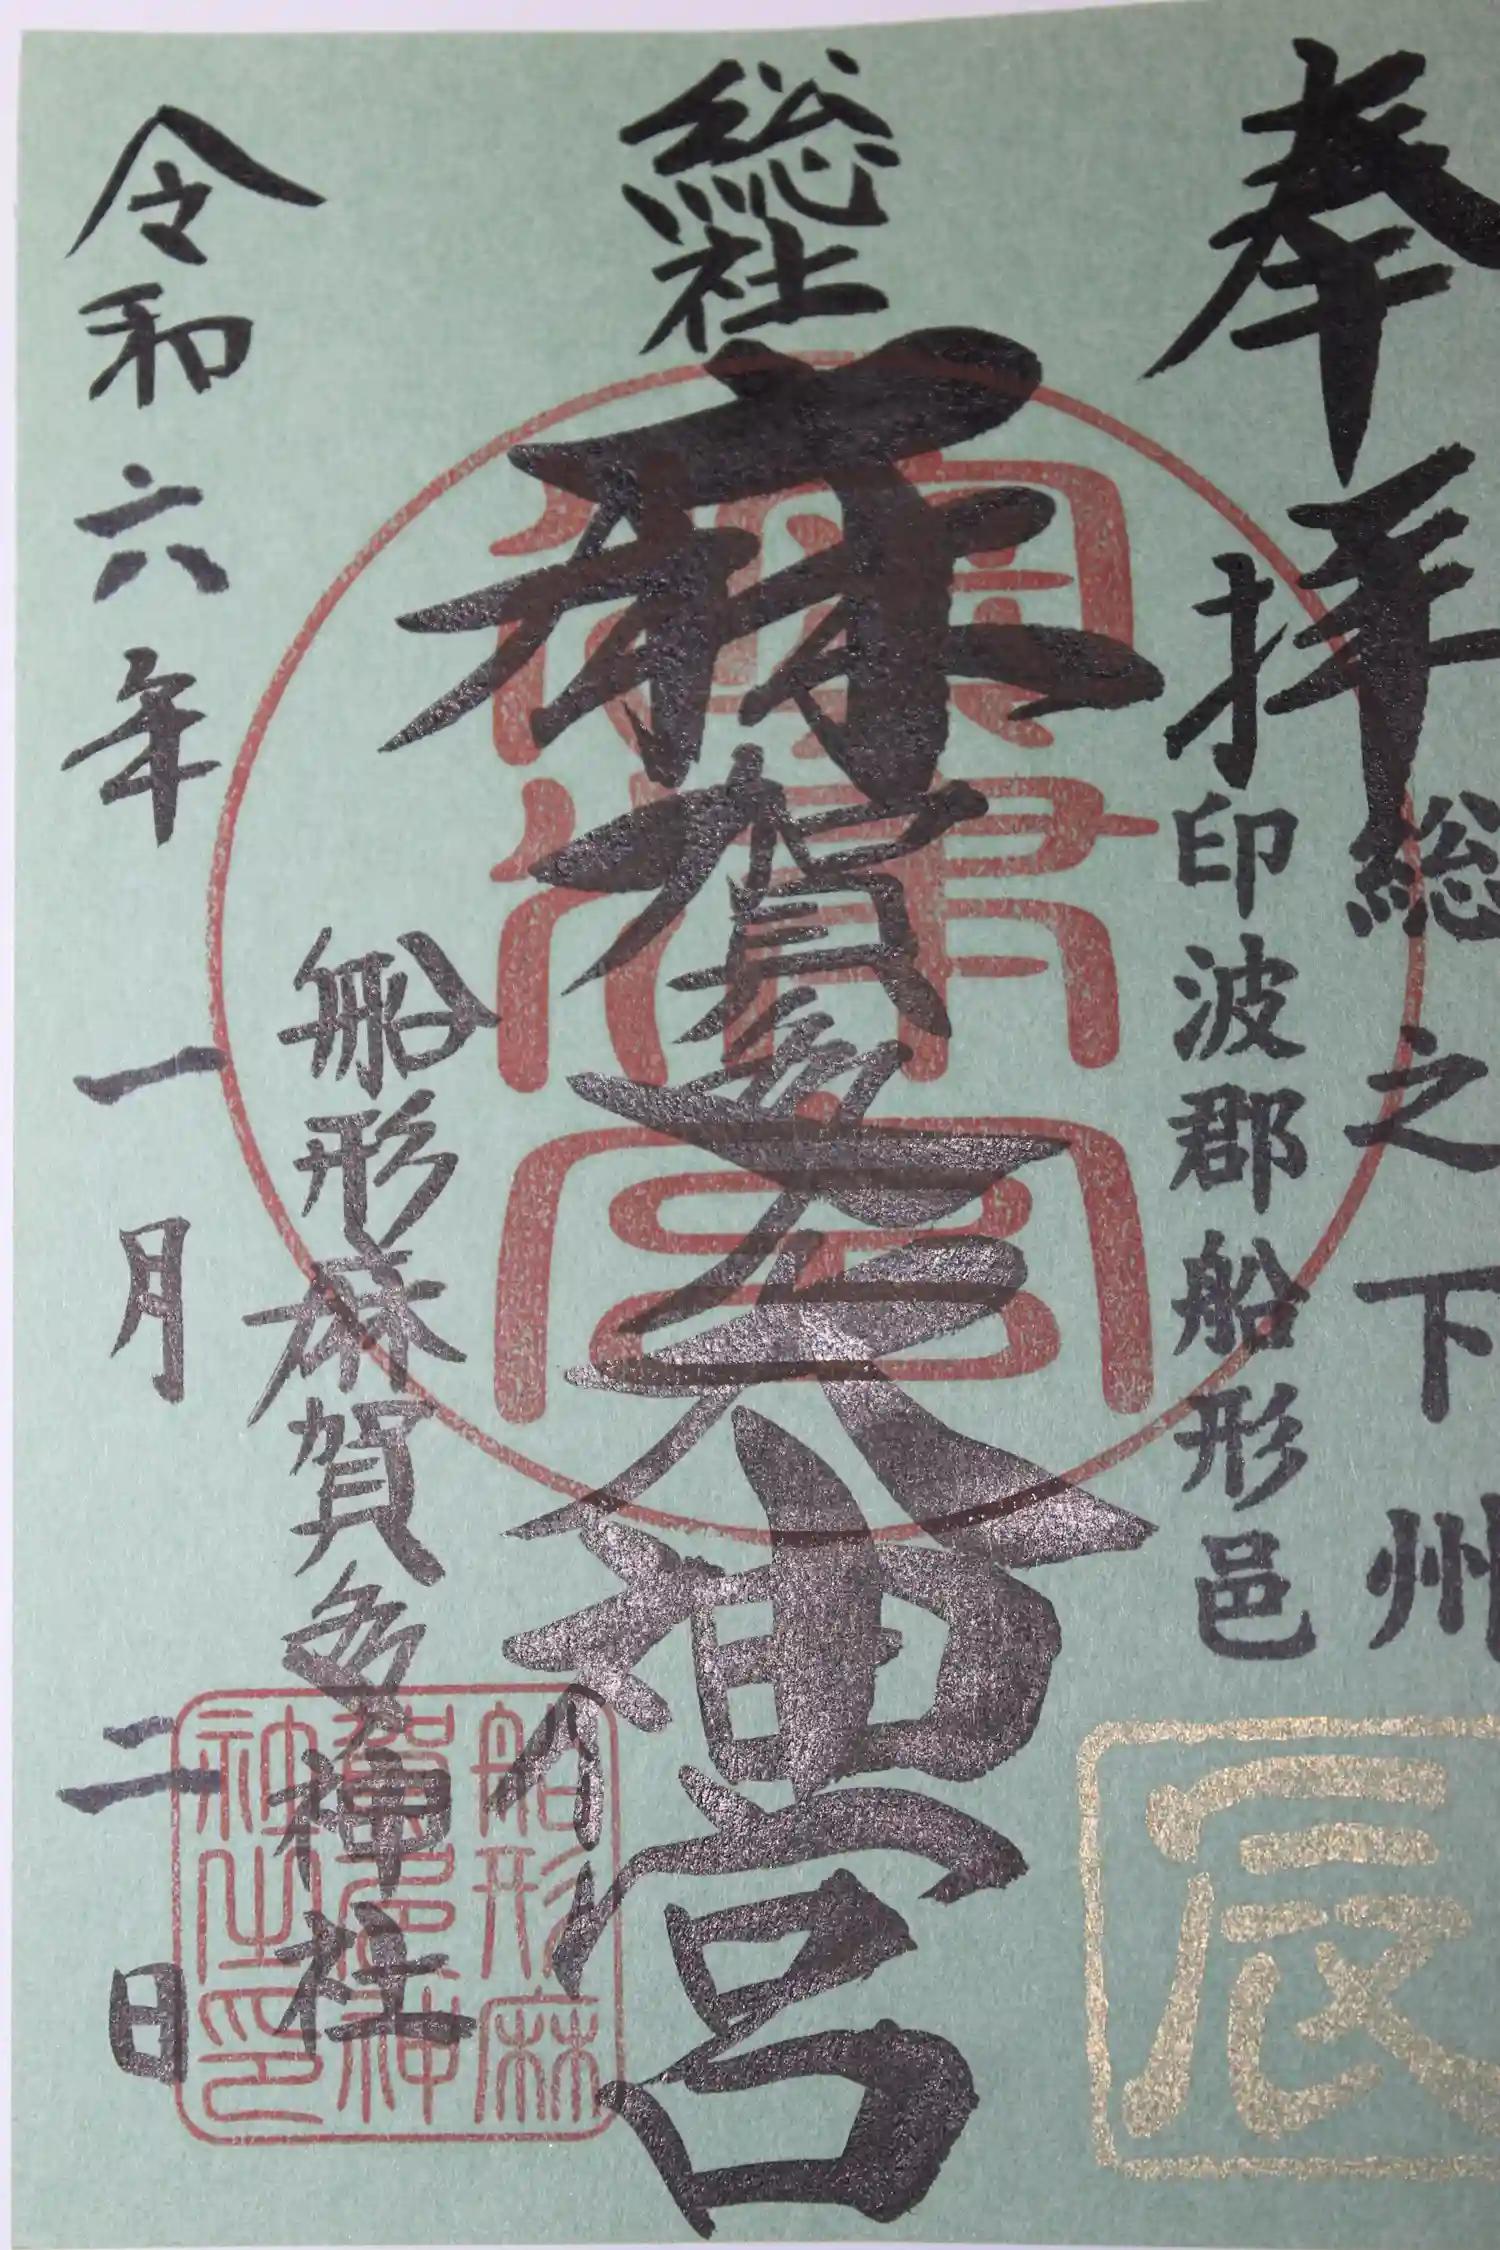 奉拝
総之下州
印波郡船形邑
辰
総社
麻賀多大神宮
澳津宮
船形麻賀多神社
船形麻
賀多神
社之印
令和六年一月二日